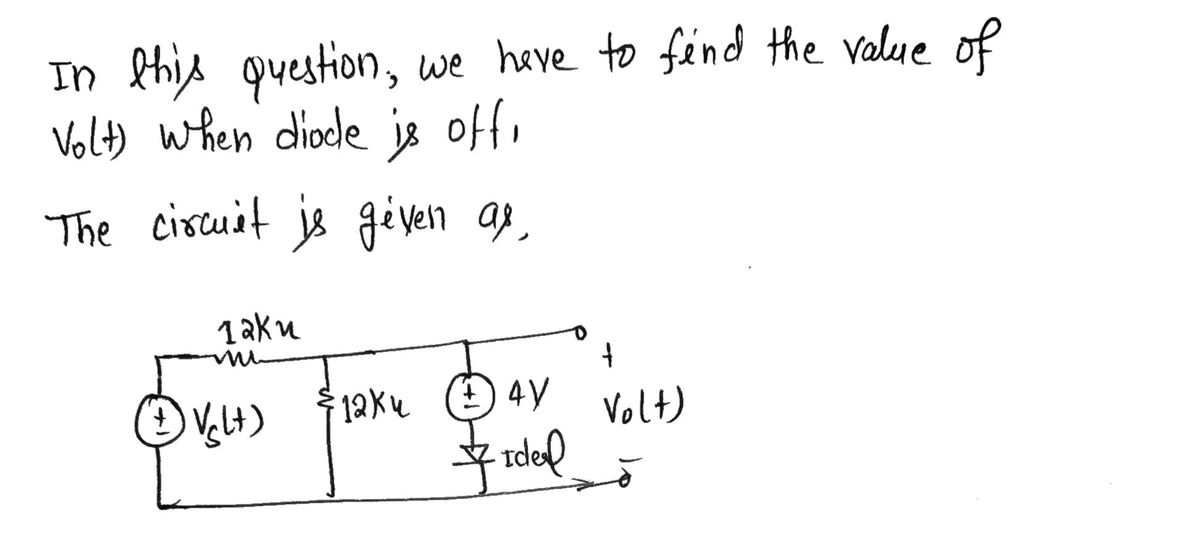 In this question, we have to find the value of
Vo(t) when diode is off,
The circuit is given as,
12KΩ
Vs(t)
12KΩ
4V
+
Vo(t)
Ideal
-